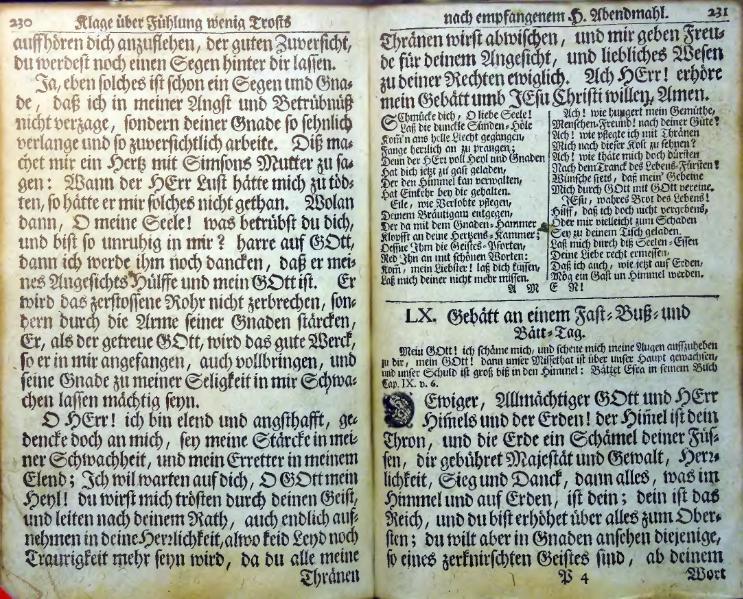 230 Klage über Fühlung wenig Trosts
auffhören dich anzuflehen, der guten Zuversicht,
du werdest noch einen Segen hinter dir lassen.
Ja, eben solches ist schon ein Segen und Gna-
de, daß ich in meiner Angst und Betrübnüß
nicht verzage, sondern deiner Gnade so sehnlich
verlange und so zuversichtlich arbeite. Diß ma-
chet mir ein Hertz mit Simsons Mutter zu sa-
gen: Wann der HErr Lust hätte mich zu töd-
ten, so hätte er mir solches nicht gethan. Wolan
dann, O meine Seele! was betrübst du dich,
und bist so unruhig in mir? harre auf GOtt,
dann ich werde ihm noch dancken, daß er mei-
nes Angesichts Hülffe und mein GOtt ist. Er
wird das zerstossene Rohr nicht zerbrechen, son-
dern durch die Arme seiner Gnaden stärcken,
Er, als der getreue GOtt, wird das gute Werck,
so er in mir angefangen, auch vollbringen, und
seine Gnade zu meiner Seligkeit in mir Schwa-
chen lassen mächtig seyn.
O HErr! ich bin elend und angsthafft, ge-
dencke doch an mich, sey meine Stärcke in mei-
ner Schwachheit, und mein Erretter in meinem
Elend; Ich wil warten auf dich, O GOtt mein
Heyl! du wirst mich trösten durch deinen Geist,
und leiten nach deinem Rath, auch endlich auf-
nehmen in deine Herzlichkeit, alwo keid Leyd noch
Traurigkeit mehr seyn wird, da du alle meine
Thränen
nach empfangenem H. Abendmahl. 231
Thränen wirst abwischen, und mir geben Freu-
de für deinem Angesicht, und liebliches Wesen
zu deiner Rechten ewiglich. Ach HErr! erhöre
mein Gebätt umb JEsu Christi willen, Amen.
SChmücke dich, O liebe Seele!
Laß die dunckle Sünden-Höle
Kom̃ ans helle Liecht gegangen,
Fange herlich an zu prangen;
Denn der HErr voll Heyl und Gnaden
Hat dich jetzt zu gast geladen,
Der den Himmel kan verwalten,
Hat Einkehr bey dir gehalten.
Eile, wie Verlobte pflegen,
Deinem Bräutigam entgegen,
Der da mit dem Gnaden-Hammer
Klopfft an deine Hertzens-Kammer;
Oeffne Ihm die Geistes-Pforten,
Red Ihn an mit schönen Worten:
Kom̃, mein Liebster! laß dich küssen,
Laß mich deiner nicht mehr missen.
Ach! wie hungert mein Gemüthe,
Menschen-Freund! nach deiner Güte?
Ach! wie pflegte ich mit Thränen
Mich nach dieser Kost zu sehnen?
Ach! wie thäte mich doch dürsten
Nach dem Tranck des Lebens-Fürsten?
Wünsche stets, daß mein Gebeine
Mich durch GOtt mit GOtt vereine.
JEsu, wahres Brot des Lebens!
Hilff, daß ich doch nicht vergebens,
Oder mir vielleicht zum Schaden
Sey zu deinem Tisch geladen.
Laß mich durch diß Seelen-Essen
Deine Liebe recht ermessen,
Daß ich auch, wie jetzt auf Erden,
Mög ein Gast im Himmel werden.
A M E N!
LX. Gebätt an einem Fast-Buß-und
Bätt-Tag.
Mein GOtt! ich schäme mich, und scheue mich meine Augen auffzuheben
zu dir, mein GOtt! dann unser Missethat ist über unser Haupt gewachsen,
und unser Schuld ist groß biß in den Himmel: Bättet Esra in seinem Buch
Cap. IX. v. 6.
O Ewiger, Allmächtiger GOtt und HErr
Him̃els und der Erden! der Him̃el ist dein
Thron, und die Erde ein Schämel deiner Füs-
sen, dir gebühret Majestät und Gewalt, Herz-
lichkeit, Sieg und Danck, dann alles, was im
Himmel und auf Erden, ist dein; dein ist das
Reich, und du bist erhöhet über alles zum Ober-
sten; du wilt aber in Gnaden ansehen diejenige,
so eines zerknirschten Geistes sind, ab deinem
P 4 Wort